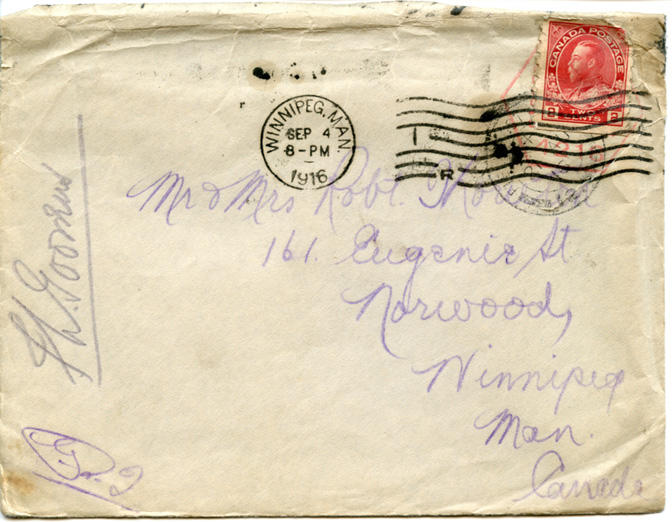 CANADA POSTAGE
2 TWO CENTS 2
WINNIPEG, MAN.
SEP 4
8-PM
1916
R
Mr & Mrs Robt.
161 Eugenie St
Norwood,
Winnipeg
Man.
Canada